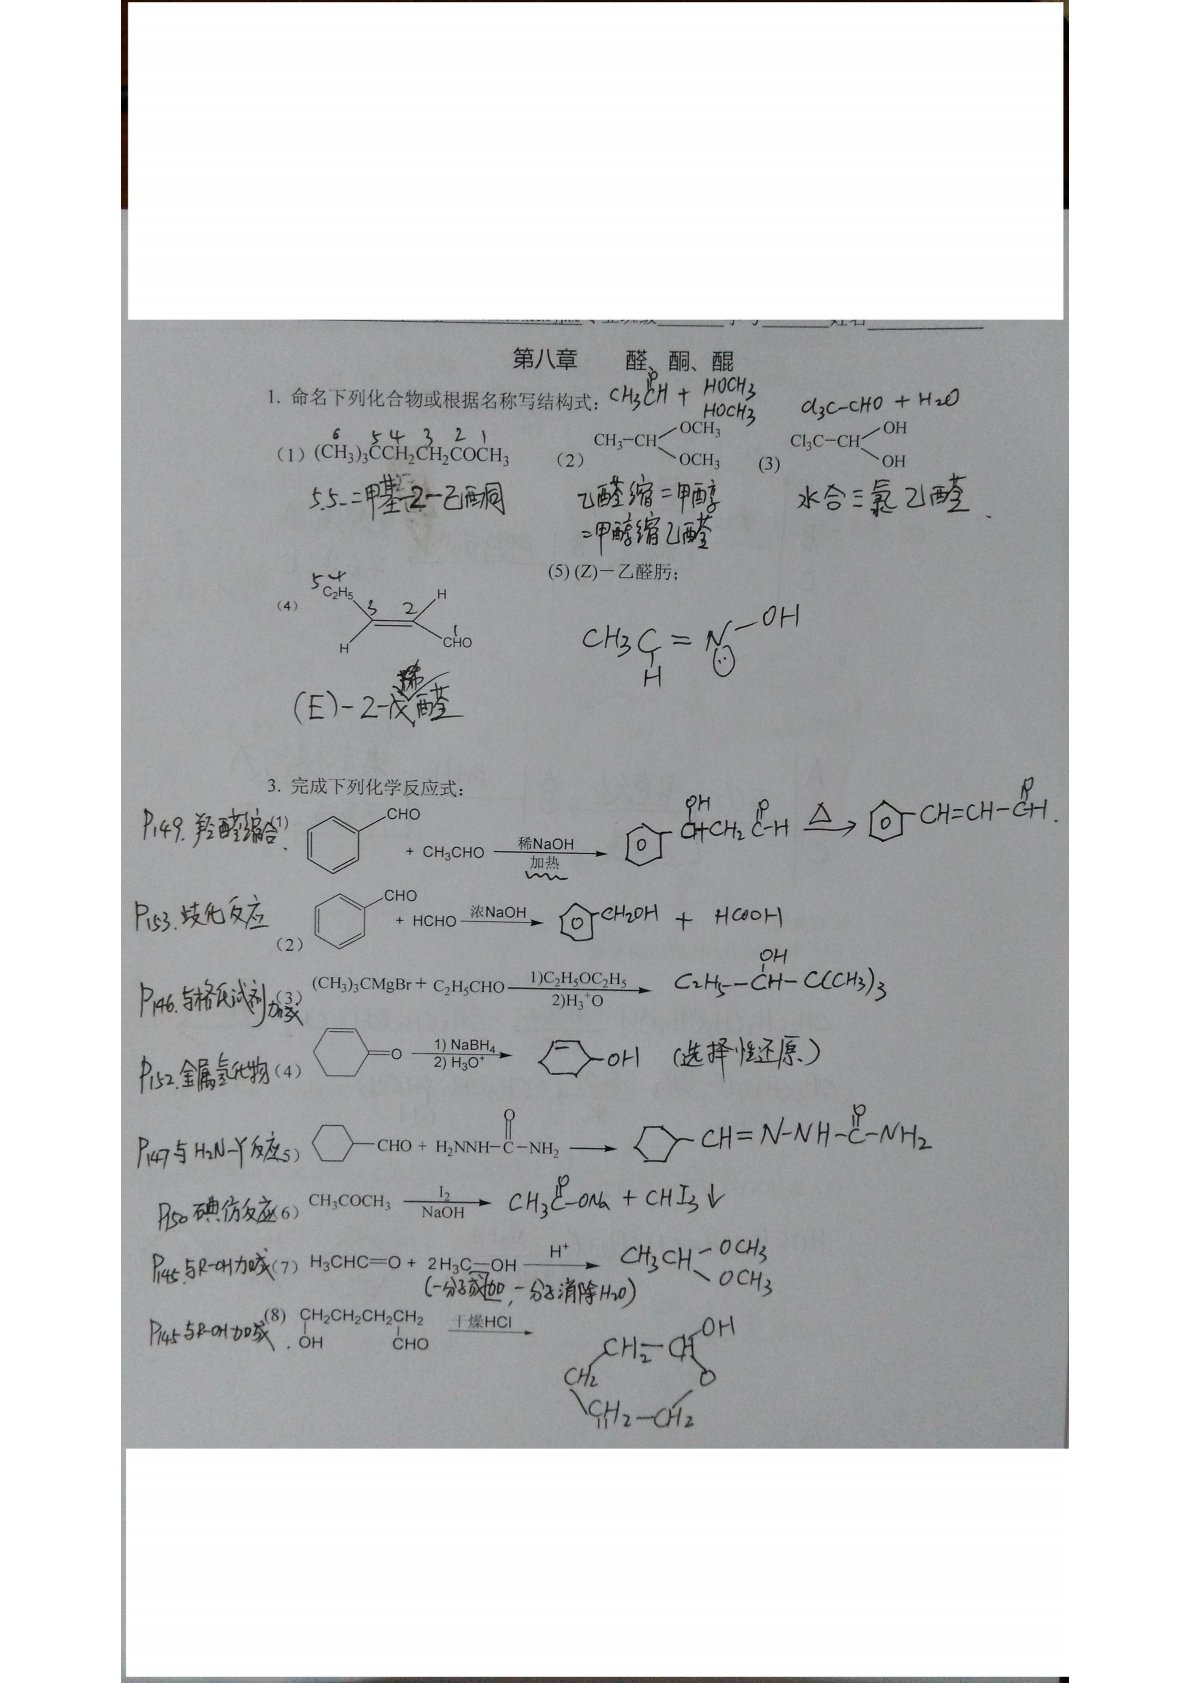 第八章 醛、酮、醌
1. 命名下列化合物或根据名称写结构式:
CH3CH + HOCH3
O
HOCH3
Cl3C-CHO + H2O
6 5 4 3 2 1
(1) (CH3)3CCH2CH2COCH3
(2) CH3-CH OCH3 OCH3
(3) Cl3C-CH OH OH
5.5-二甲基-2-己酮
乙醛缩二甲醇
二甲醇缩乙醛
水合三氯乙醛
(4) C2H5 H H CHO
5 4 3 2 1
(5) (Z)-乙醛肟;
CH3C=N-OH
H
(E)-2-戊烯醛
3. 完成下列化学反应式:
P149. 羟醛缩合 (1) CHO + CH3CHO 稀NaOH 加热 OH CHCH2 O C-H △ CH=CH-CH O
P153. 歧化反应 (2) CHO + HCHO 浓NaOH CH2OH + HCOOH
P146. 与格氏试剂加成 (3) (CH3)3CMgBr + C2H5CHO 1)C2H5OC2H5 2)H3+O C2H5-CH-C(CH3)3 OH
P152. 金属氢化物 (4) O 1) NaBH4 2) H3O+ OH (选择性还原)
P147 与H2N-Y反应 5) CHO + H2NNH-C-NH2 O CH=N-NH-C-NH2 O
P150 碘仿反应 6) CH3COCH3 I2 NaOH CH3C-ONa O + CHI3↓
P145. 与R-OH加成 (7) H3CHC=O + 2H3C-OH H+ CH3CH OCH3 OCH3
(一分子加成, 一分子消除H2O)
P145 与R-OH加成. (8) CH2CH2CH2CH2 OH CHO 干燥HCl
CH2-CH OH
CH2 O
CH2-CH2